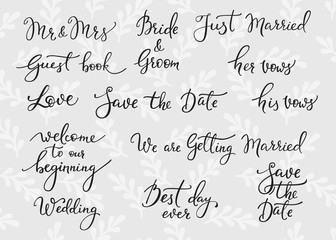 Mr & Mrs
Bride
&
Groom
Just Married
Guest book
her vows
Love
Save the Date
his vows
welcome
to our
beginning
We are Getting Married
Save
the
Date
Wedding
Best day
ever